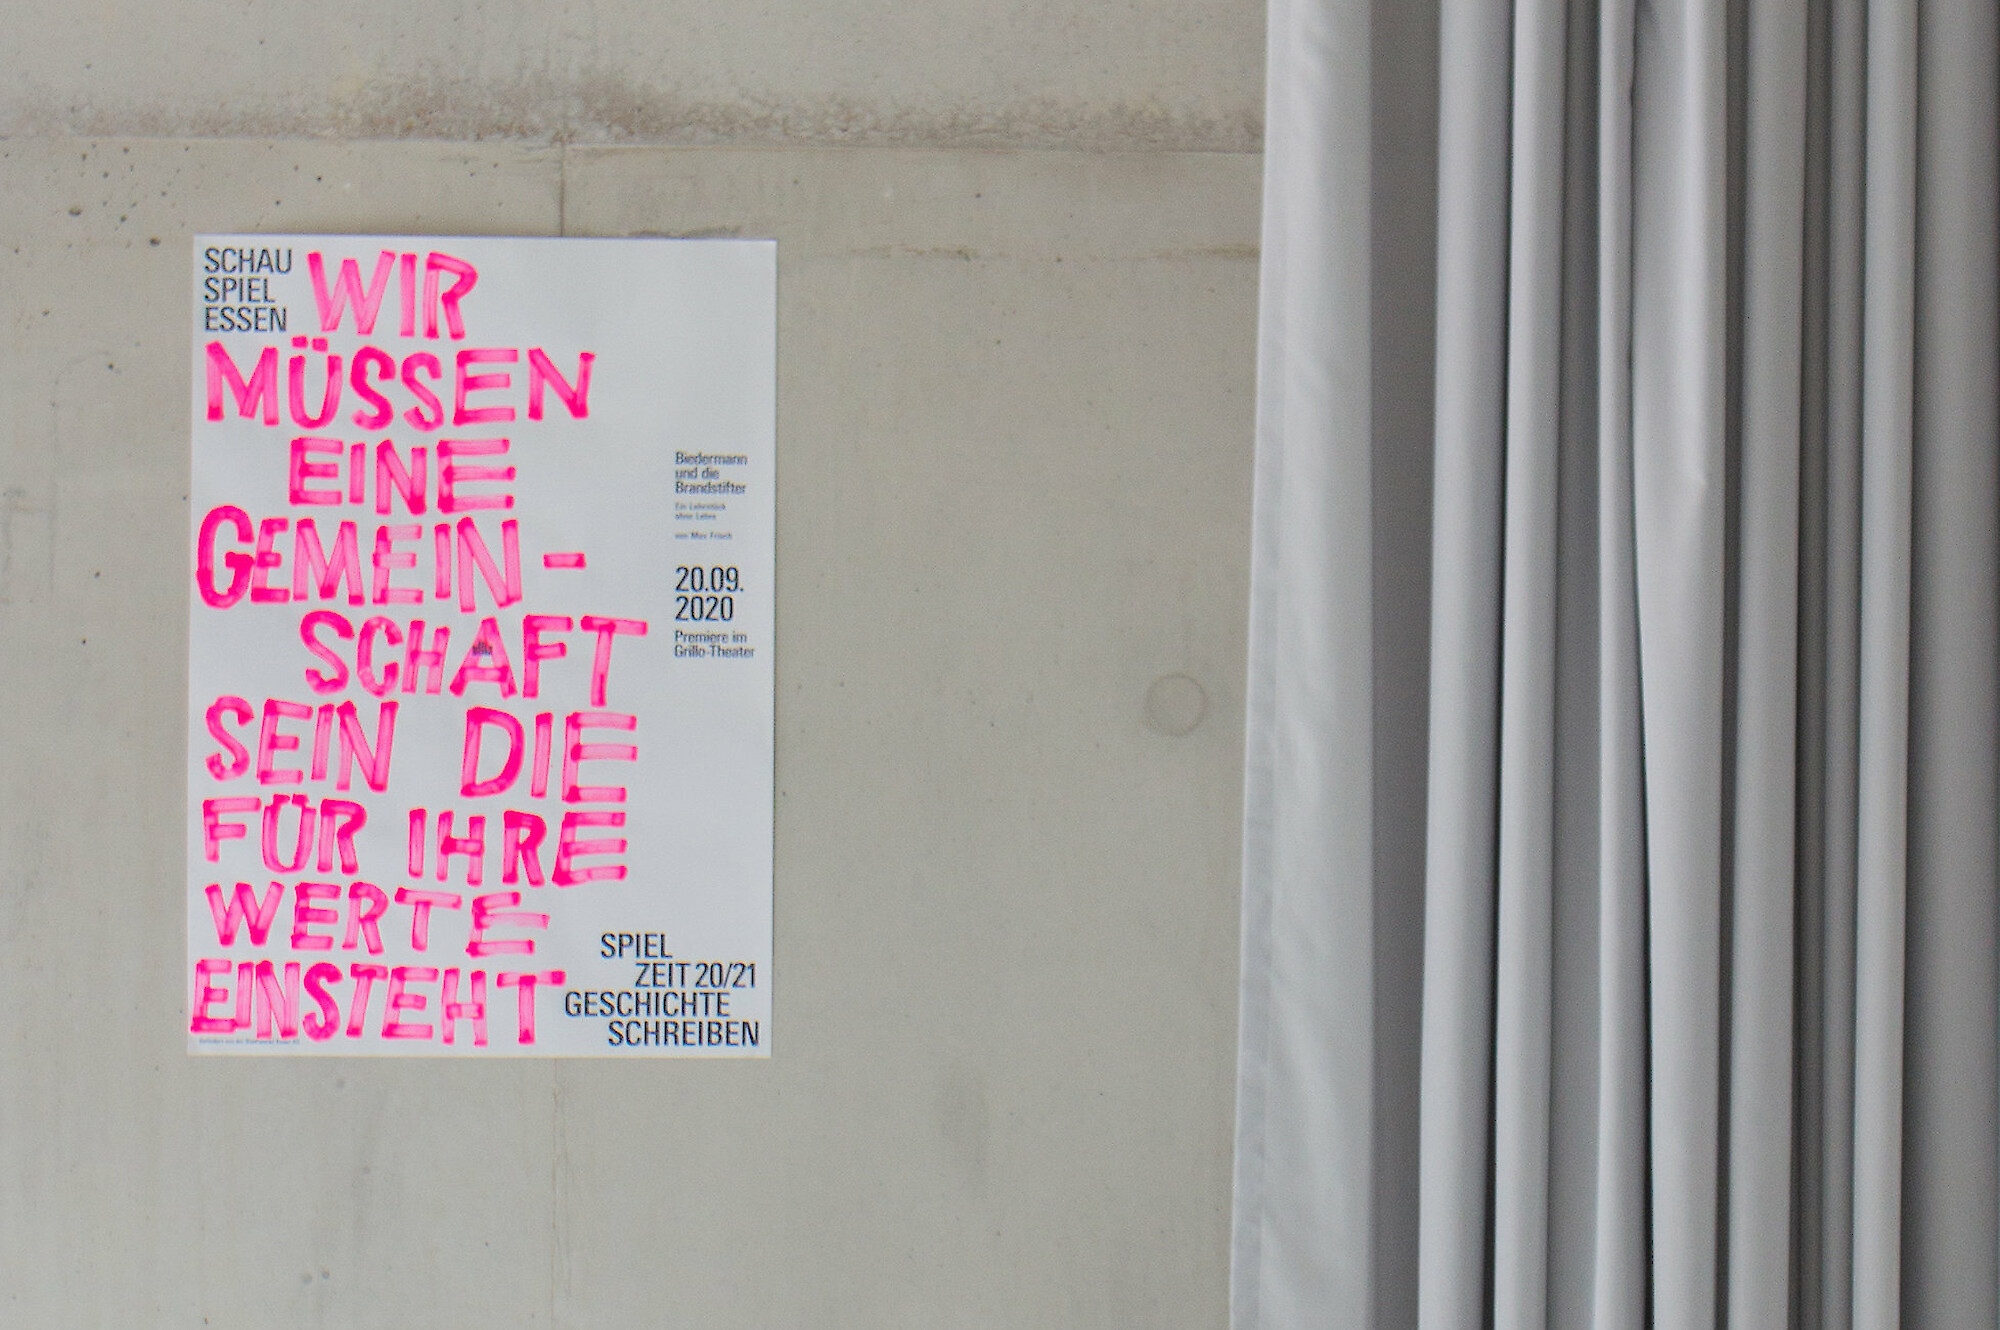 SCHAU
SPIEL
ESSEN
WIR
MÜSSEN
EINE
GEMEIN-
SCHAFT
SEIN DIE
FÜR IHRE
WERTE
EINSTEHT
Biedermann
und die
Brandstifter
Ein Lehrstück
ohne Lehre
von Max Frisch
20.09.
2020
Premiere im
Grillo-Theater
SPIEL
ZEIT 20/21
GESCHICHTE
SCHREIBEN